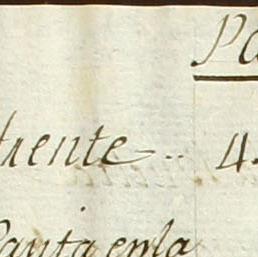 Pa
frente 4
Santa en la